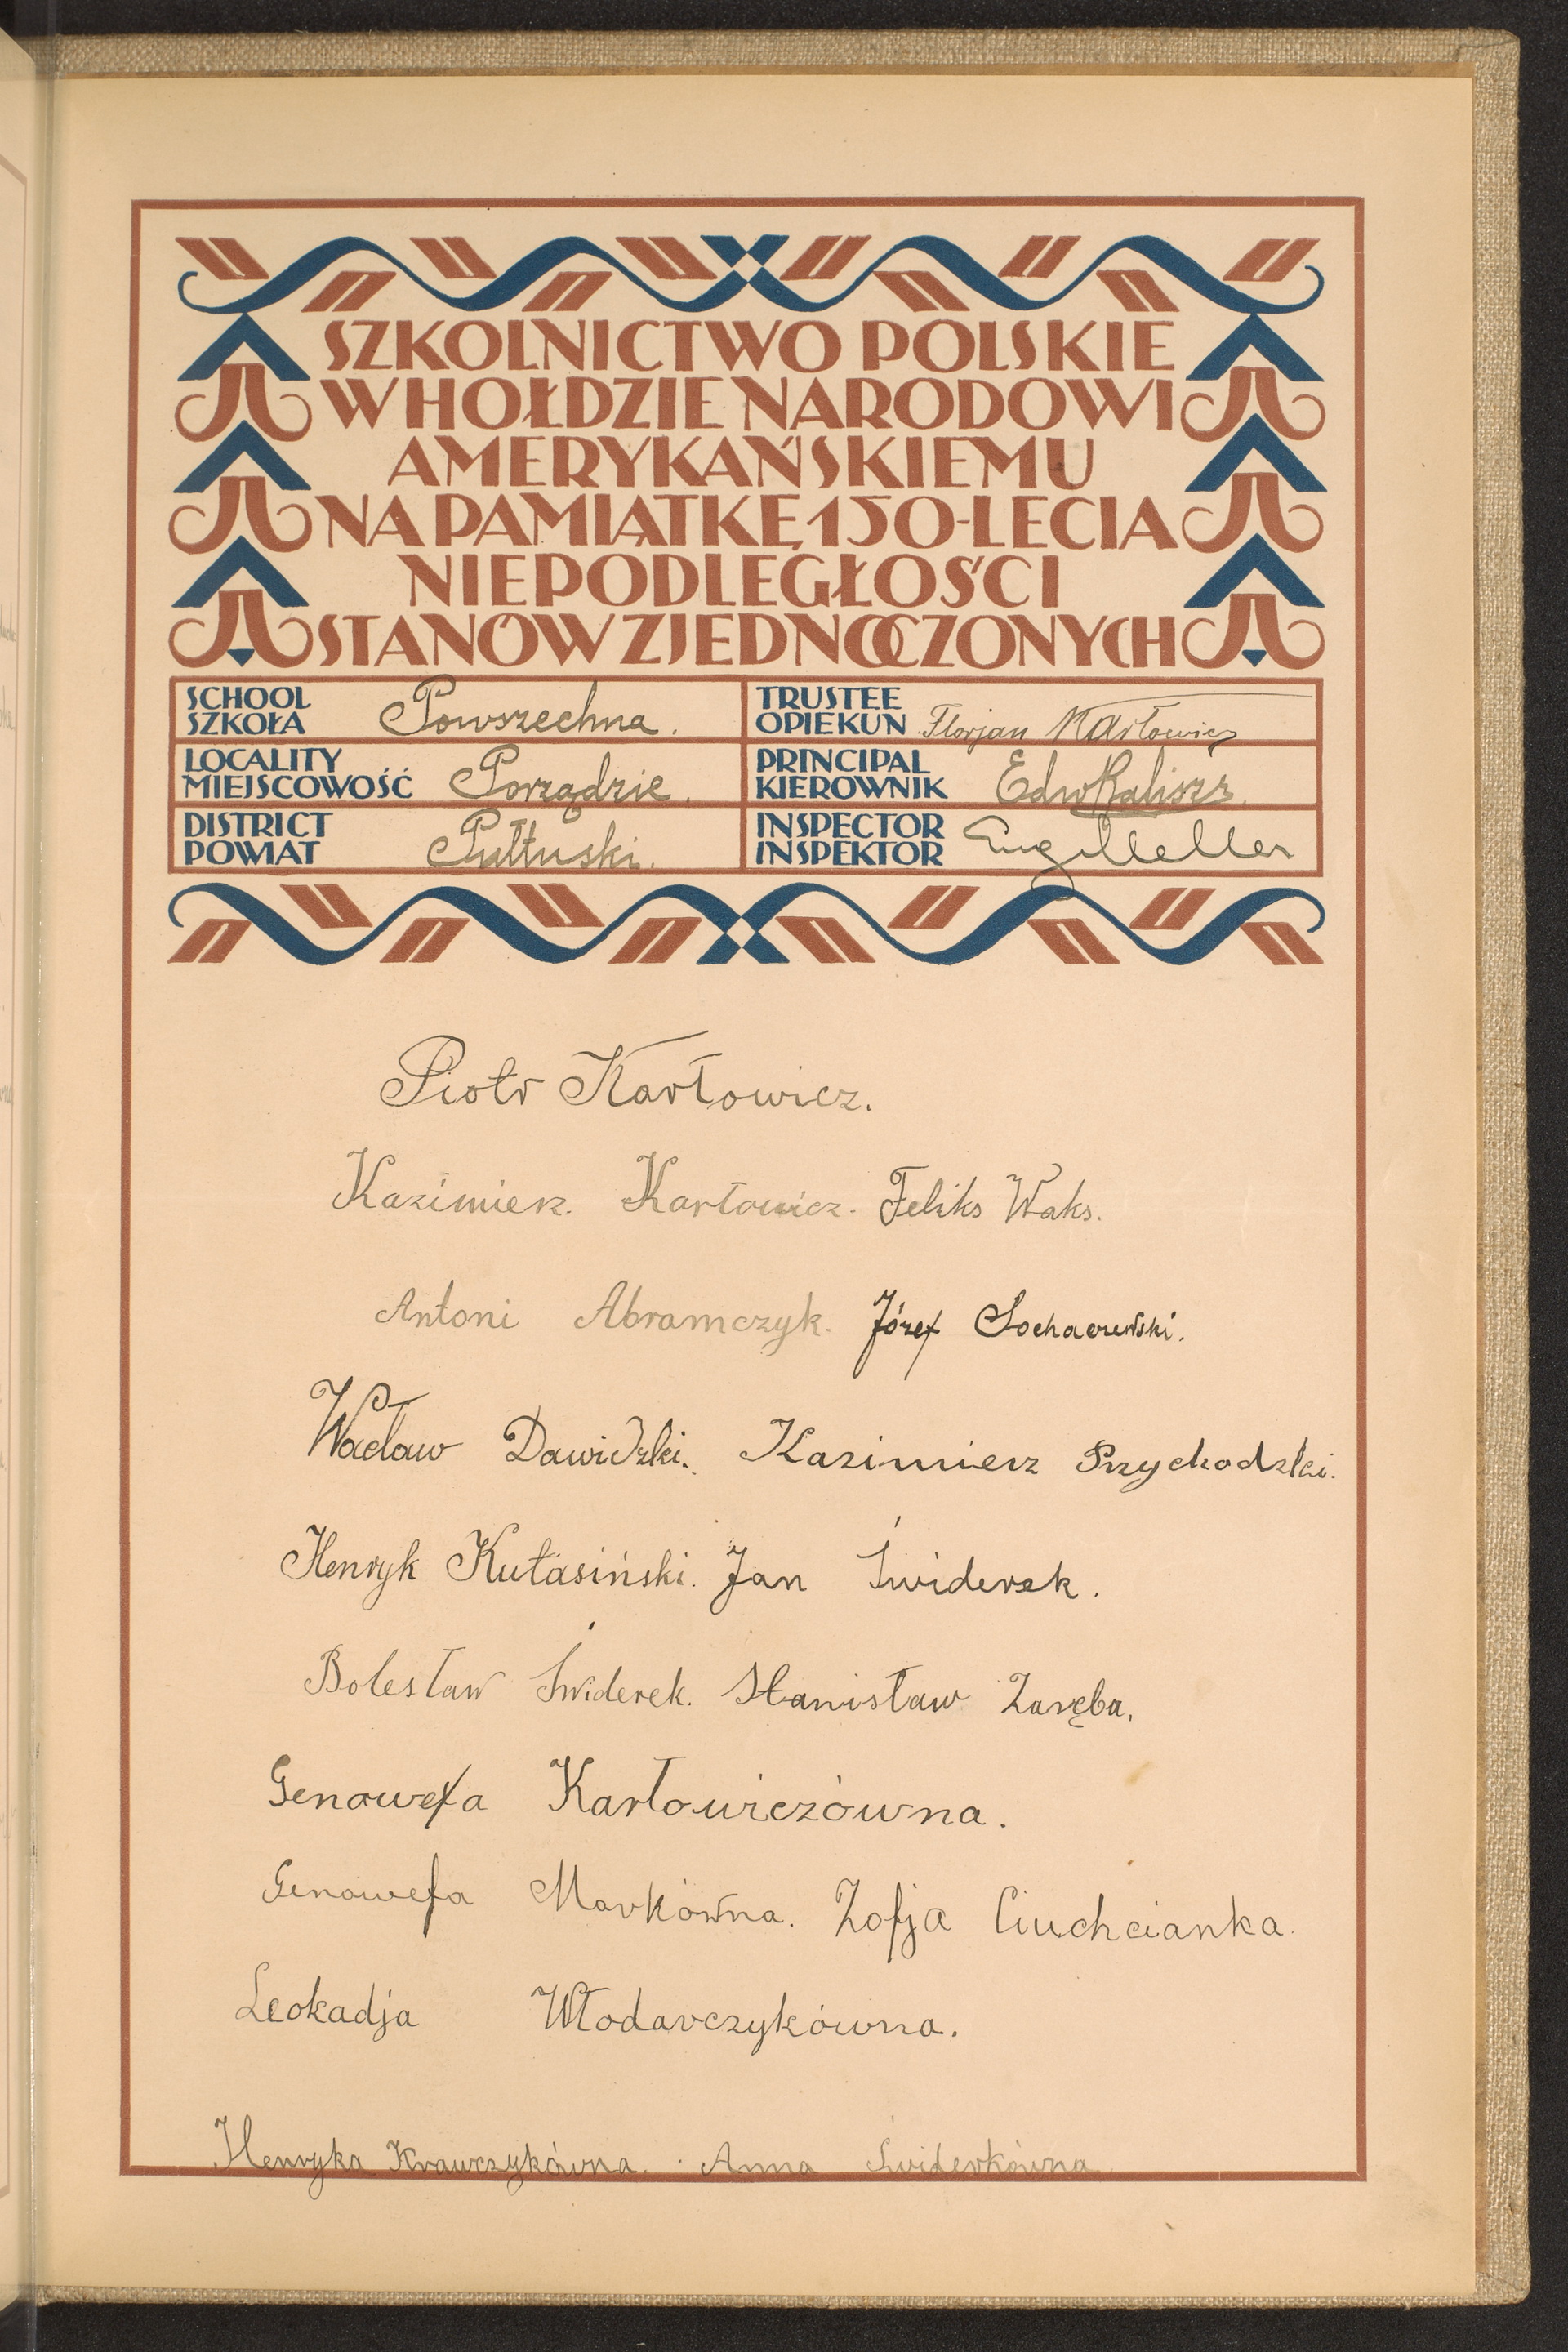 SZKOLNICTWO POLSKIE
W HOŁDZIE NARODOWI
AMERYKAŃSKIEMU
NA PAMIĄTKĘ 150-LECIA
NIEPODLEGŁOŚCI
STANÓW ZJEDNOCZONYCH
SCHOOL
SZKOŁA Powszechna.
TRUSTEE
OPIEKUN Florjan Karłowicz
LOCALITY
MIEJSCOWOŚĆ Porządzie.
PRINCIPAL
KIEROWNIK Edw Kalisz
DISTRICT
POWIAT Pułtuski.
INSPECTOR
INSPEKTOR
Piotr Karłowicz.
Kazimierz. Karłowicz. Feliks Waks.
Antoni Abramczyk. Józef Sochaczewski.
Wacław Dawidzki. Kazimierz Przychodzki.
Henryk Kutasiński. Jan Świderek.
Bolesław Świderek. Stanisław Zaręba.
Genowefa Karłowiczówna.
Genowefa Markówna. Zofja Ciuchcianka.
Leokadja Włodarczykówna.
Henryka Krawczykówna. Anna Świderkówna